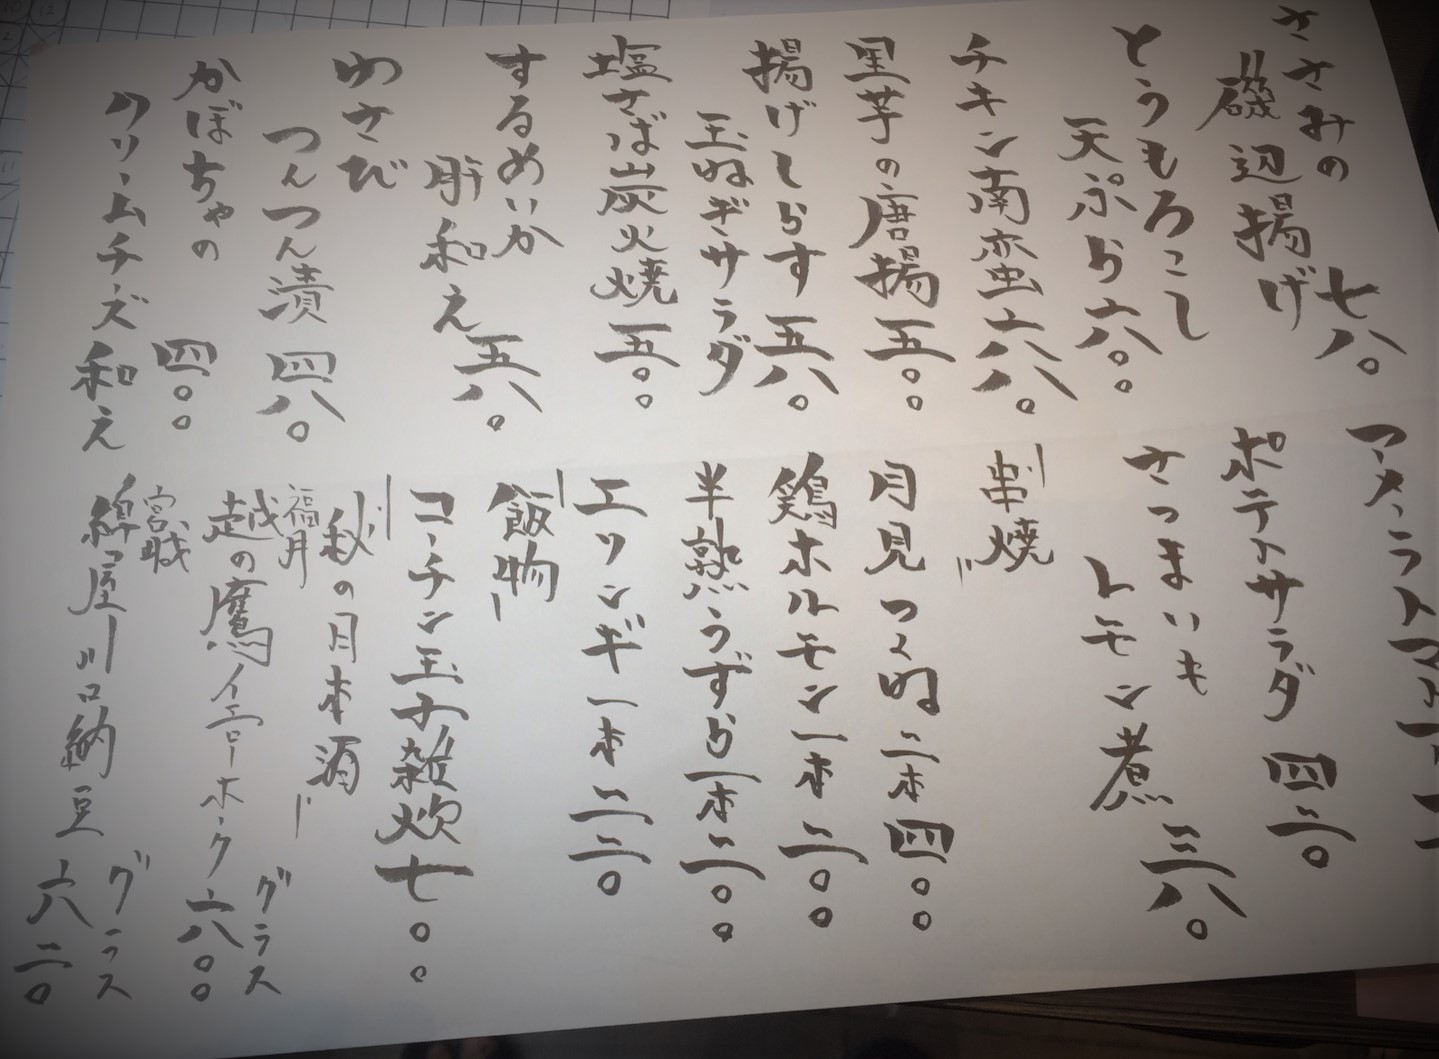 ささみの
磯辺揚げ
七八〇
とうもろこし
天ぷら六〇〇
チキン南蛮六八〇
里芋の唐揚五〇〇
揚げしらす五八〇
玉ねぎサラダ
塩さば炭火焼五〇〇
するめいか
肝和え五八〇
わさび
つんつん漬四八〇
かぼちゃの四〇〇
クリームチーズ和え
ポテトサラダ四二〇
さつまいも
レモン煮三八〇
串焼
月見つくね二本四〇〇
鶏ホルモン一本二〇〇
半熟うずら一本二〇〇
エリンギ一本二二〇
飯物
コーチン玉子雑炊七〇〇
秋の日本酒
福井
越の鷹イエローホークグラス六八〇
宮城
綿屋川口納豆グラス六二〇